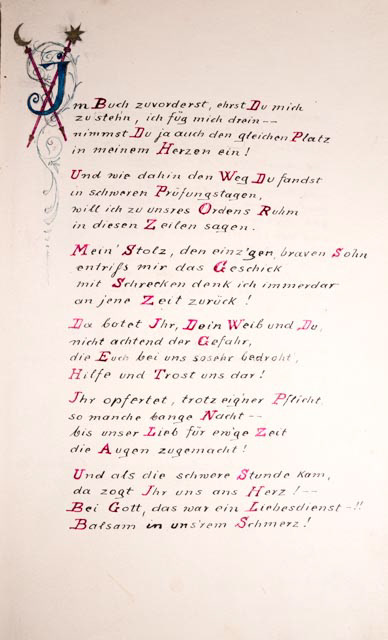 Im Buch zuvorderst, ehrst Du mich
zu stehn, ich füg mich drein--
nimmst Du ja auch den gleichen Platz
in meinem Herzen ein!
Und wie dahin den Weg Du fandst
in schweren Prüfungstagen,
will ich zu unsres Ordens Ruhm
in diesen Zeilen sagen.
Mein' Stolz, den einz'gen, braven Sohn
entriß mir das Geschick
mit Schrecken denk ich immerdar
an jene Zeit zurück!
Da botet Ihr, Dein Weib und Du,
nicht achtend der Gefahr,
die Euch bei uns sosehr bedroht,
Hilfe und Trost uns dar!
Ihr opfertet, trotz eigner Pflicht
so manche bange Nacht--
bis unser Lieb für ew'ge Zeit
die Augen zugemacht!
Und als die schwere Stunde kam,
da zogt Ihr uns ans Herz!--
Bei Gott, das war ein Liebesdienst-!!
Balsam in uns'rem Schmerz!